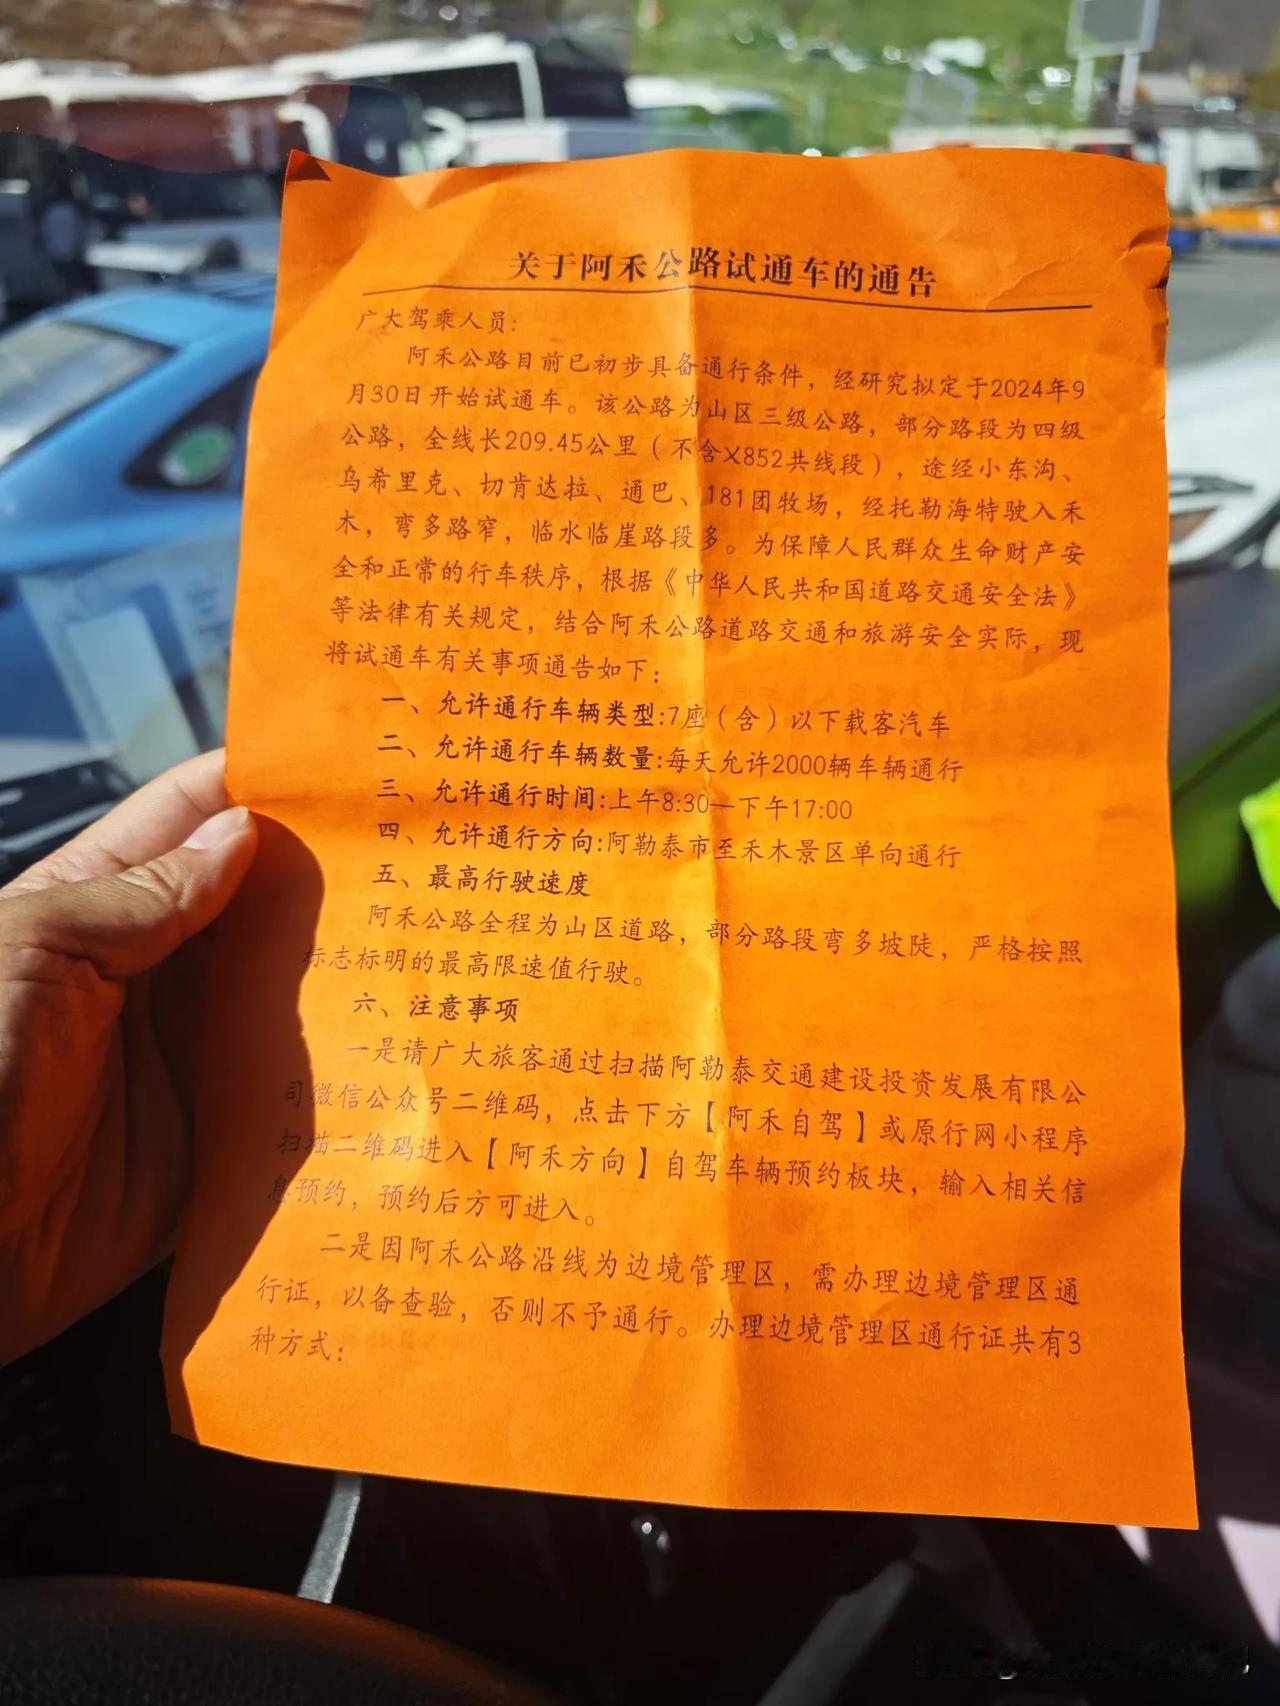 关于阿禾公路试通车的通告
广大驾乘人员：
阿禾公路目前已初步具备通行条件，经研究拟定于2024年9
月30日开始试通车。该公路为山区三级公路，部分路段为四级
公路，全线长209.45公里（不含X852共线段），途经小东沟、
乌希里克、切肯达拉、通巴、181团牧场，经托勒海特驶入禾
木，弯多路窄，临水临崖路段多。为保障人民群众生命财产安
全和正常的行车秩序，根据《中华人民共和国道路交通安全法》
等法律有关规定，结合阿禾公路道路交通和旅游安全实际，现
将试通车有关事项通告如下：
一、允许通行车辆类型:7座（含）以下载客汽车
二、允许通行车辆数量:每天允许2000辆车辆通行
三、允许通行时间:上午8:30—下午17:00
四、允许通行方向:阿勒泰市至禾木景区单向通行
五、最高行驶速度
阿禾公路全程为山区道路，部分路段弯多坡陡，严格按照
标志标明的最高限速值行驶。
六、注意事项
一是请广大旅客通过扫描阿勒泰交通建设投资发展有限公
司微信公众号二维码，点击下方【阿禾自驾】或原行网小程序
扫描二维码进入【阿禾方向】自驾车辆预约板块，输入相关信
息预约，预约后方可进入。
二是因阿禾公路沿线为边境管理区，需办理边境管理区通
行证，以备查验，否则不予通行。办理边境管理区通行证共有3
种方式：